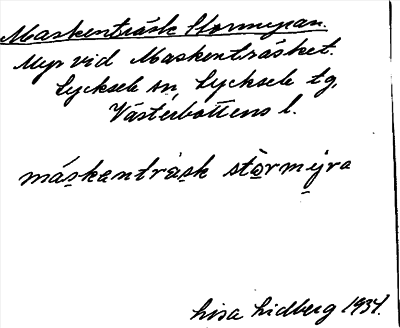 Maskenträsk Stormyran.
Myr vid Maskenträsket.
Lycksele sn, Lycksele tg,
Västerbottens l.
máskantrask stòrmyra
Lisa Lidberg 1934.